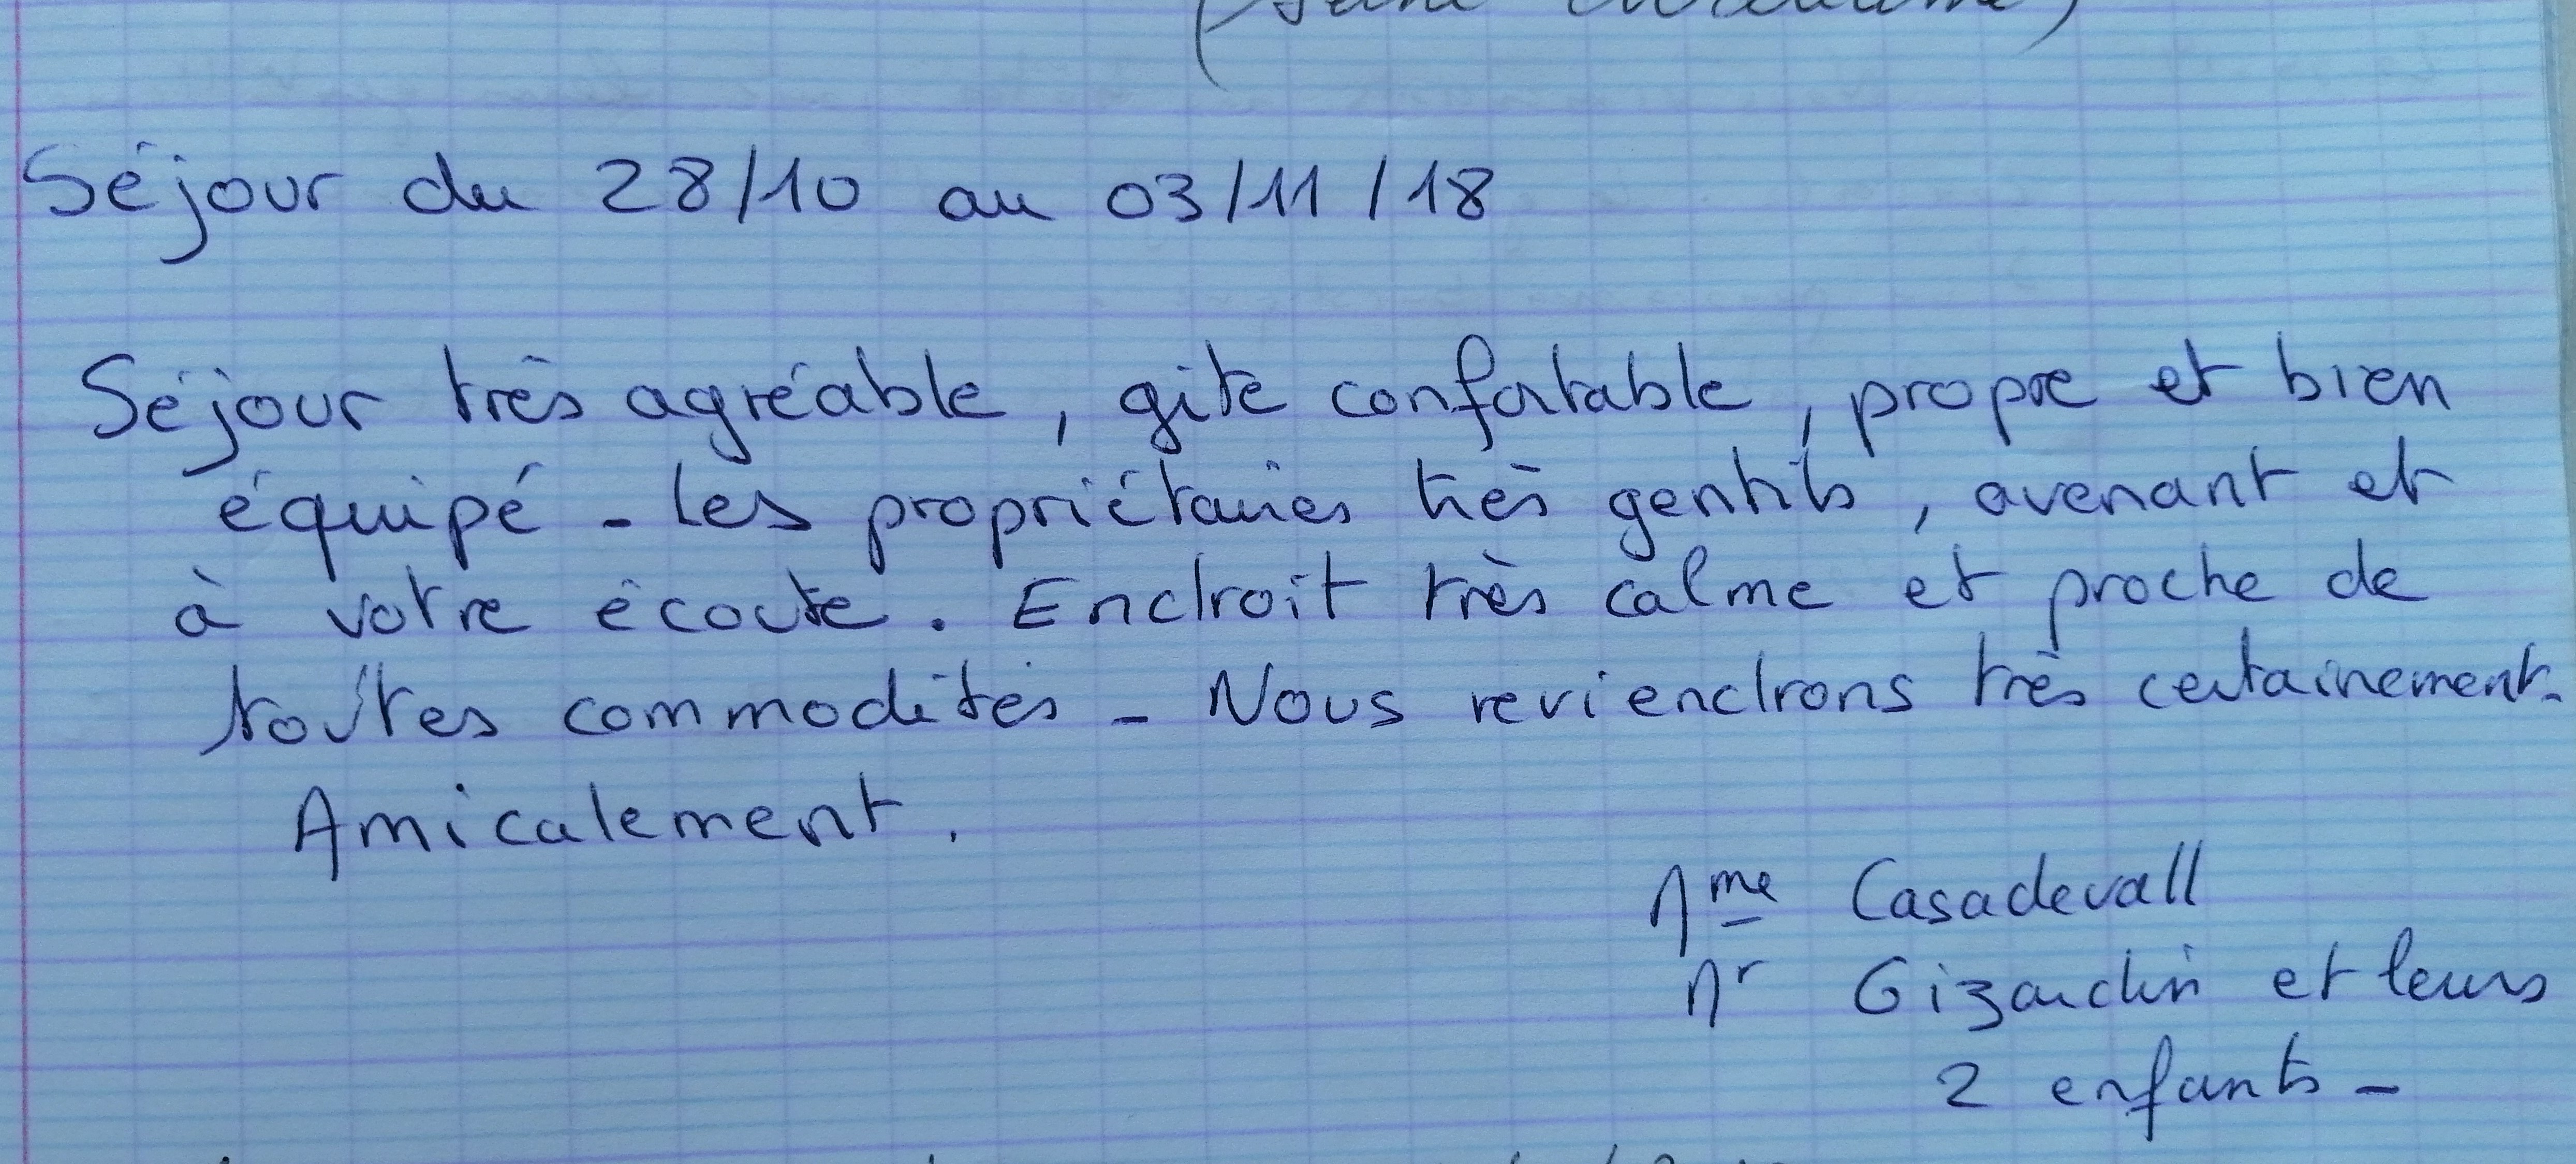 Séjour du 28/10 au 03/11/18
Séjour très agréable, gite confortable, propre et bien
équipé - Les propriétaires très gentils, avenant et
à votre écoute. Endroit très calme et proche de
toutes commodités - Nous reviendrons très certainement.
Amicalement.
Mme Casadevall
Mr Gizardin et leurs
2 enfants -